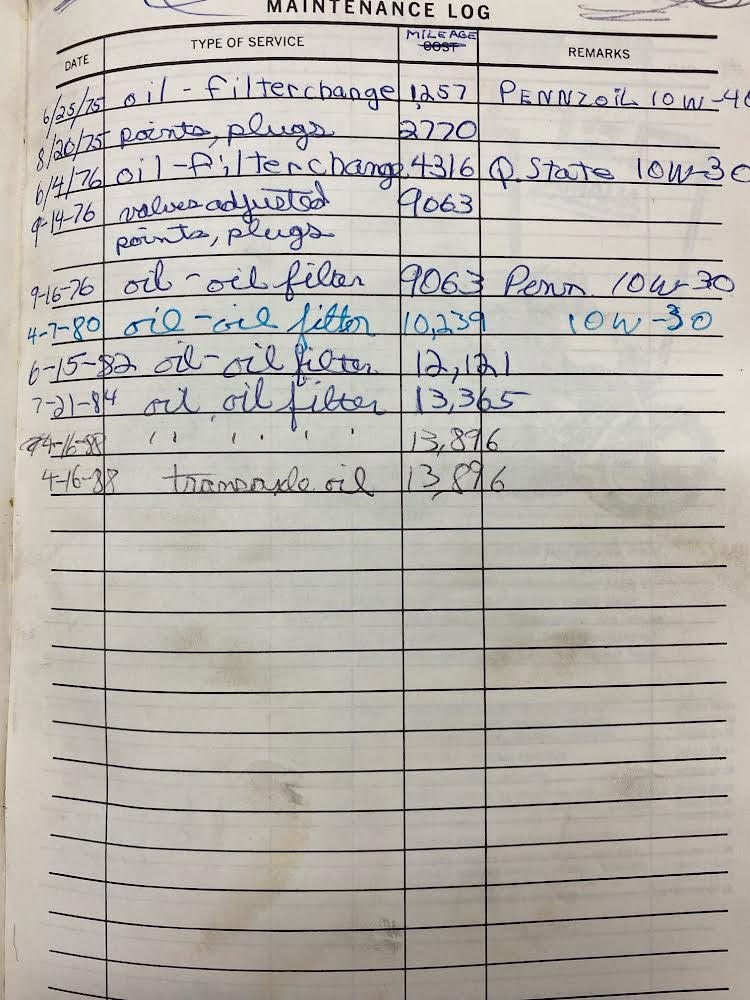 MAINTENANCE LOG
DATE TYPE OF SERVICE MILEAGE COST REMARKS
6/25/75 oil - filter change 1,257 PENNZOIL 10W-40
8/20/75 points, plugs 2770
6/4/76 oil - filter change 4316 Q. State 10W-30
9-14-76 valves adjusted 9063
points, plugs
9-16-76 oil - oil filter 9063 Penn 10W-30
4-7-80 oil - oil filter 10,239 10W-30
6-15-82 oil - oil filter 12,121
7-21-84 oil, oil filter 13,365
4-16-88 " " " " 13,896
4-16-88 transaxle oil 13,896